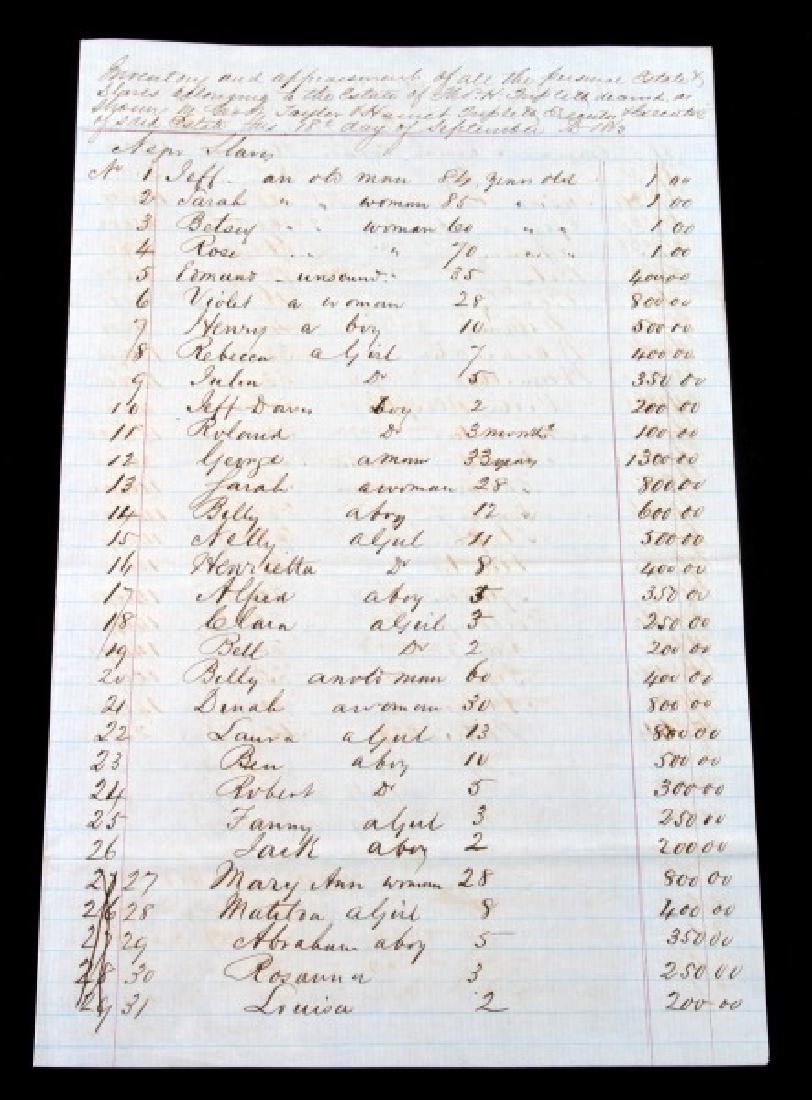 Inventory and appraisement of all the personal Estate &
Slaves belonging to the Estate of Thos. H. Triplett deceased as
shown by Taylor & Harriet Triplett Executor & Executrix
of said Estate this 18th day of September AD
Negro Slaves
No 1 Jeff an old man 84 years old 1 00
2 Sarah " " woman 85 " " 1.00
3 Betsey " " woman 60 " " 1 00
4 Rose " " " 70 " " 1.00
5 Edmund unsound " 35 400.00
6 Violet a woman 28 800 00
7 Henry a boy 10 500 00
8 Rebecca a Girl 7 400 00
9 Julia Do 5 350 00
10 Jeff Davis boy 2 200 00
11 Roland Do 3 months 100 00
12 George a man 33 years 1300.00
13 Sarah a woman 28 " 800.00
14 Billy a boy 12 " 600 00
15 Nelly a Girl 11 500 00
16 Henrietta Do 8 400 00
17 Alfred a boy 5 350 00
18 Clara a Girl 3 250 00
19 Bell Do 2 200 00
20 Billy an old man 60 400 00
21 Dinah a woman 30 800 00
22 Laura a Girl 13 800.00
23 Ben a boy 10 500 00
24 Robert Do 5 300 00
25 Fanny a Girl 3 250 00
26 Jack a boy 2 200 00
27 Mary Ann woman 28 800 00
28 Matilda a Girl 8 400 00
29 Abraham a boy 5 350 00
28 30 Rosanna 3 250 00
29 31 Louisa 2 200 00